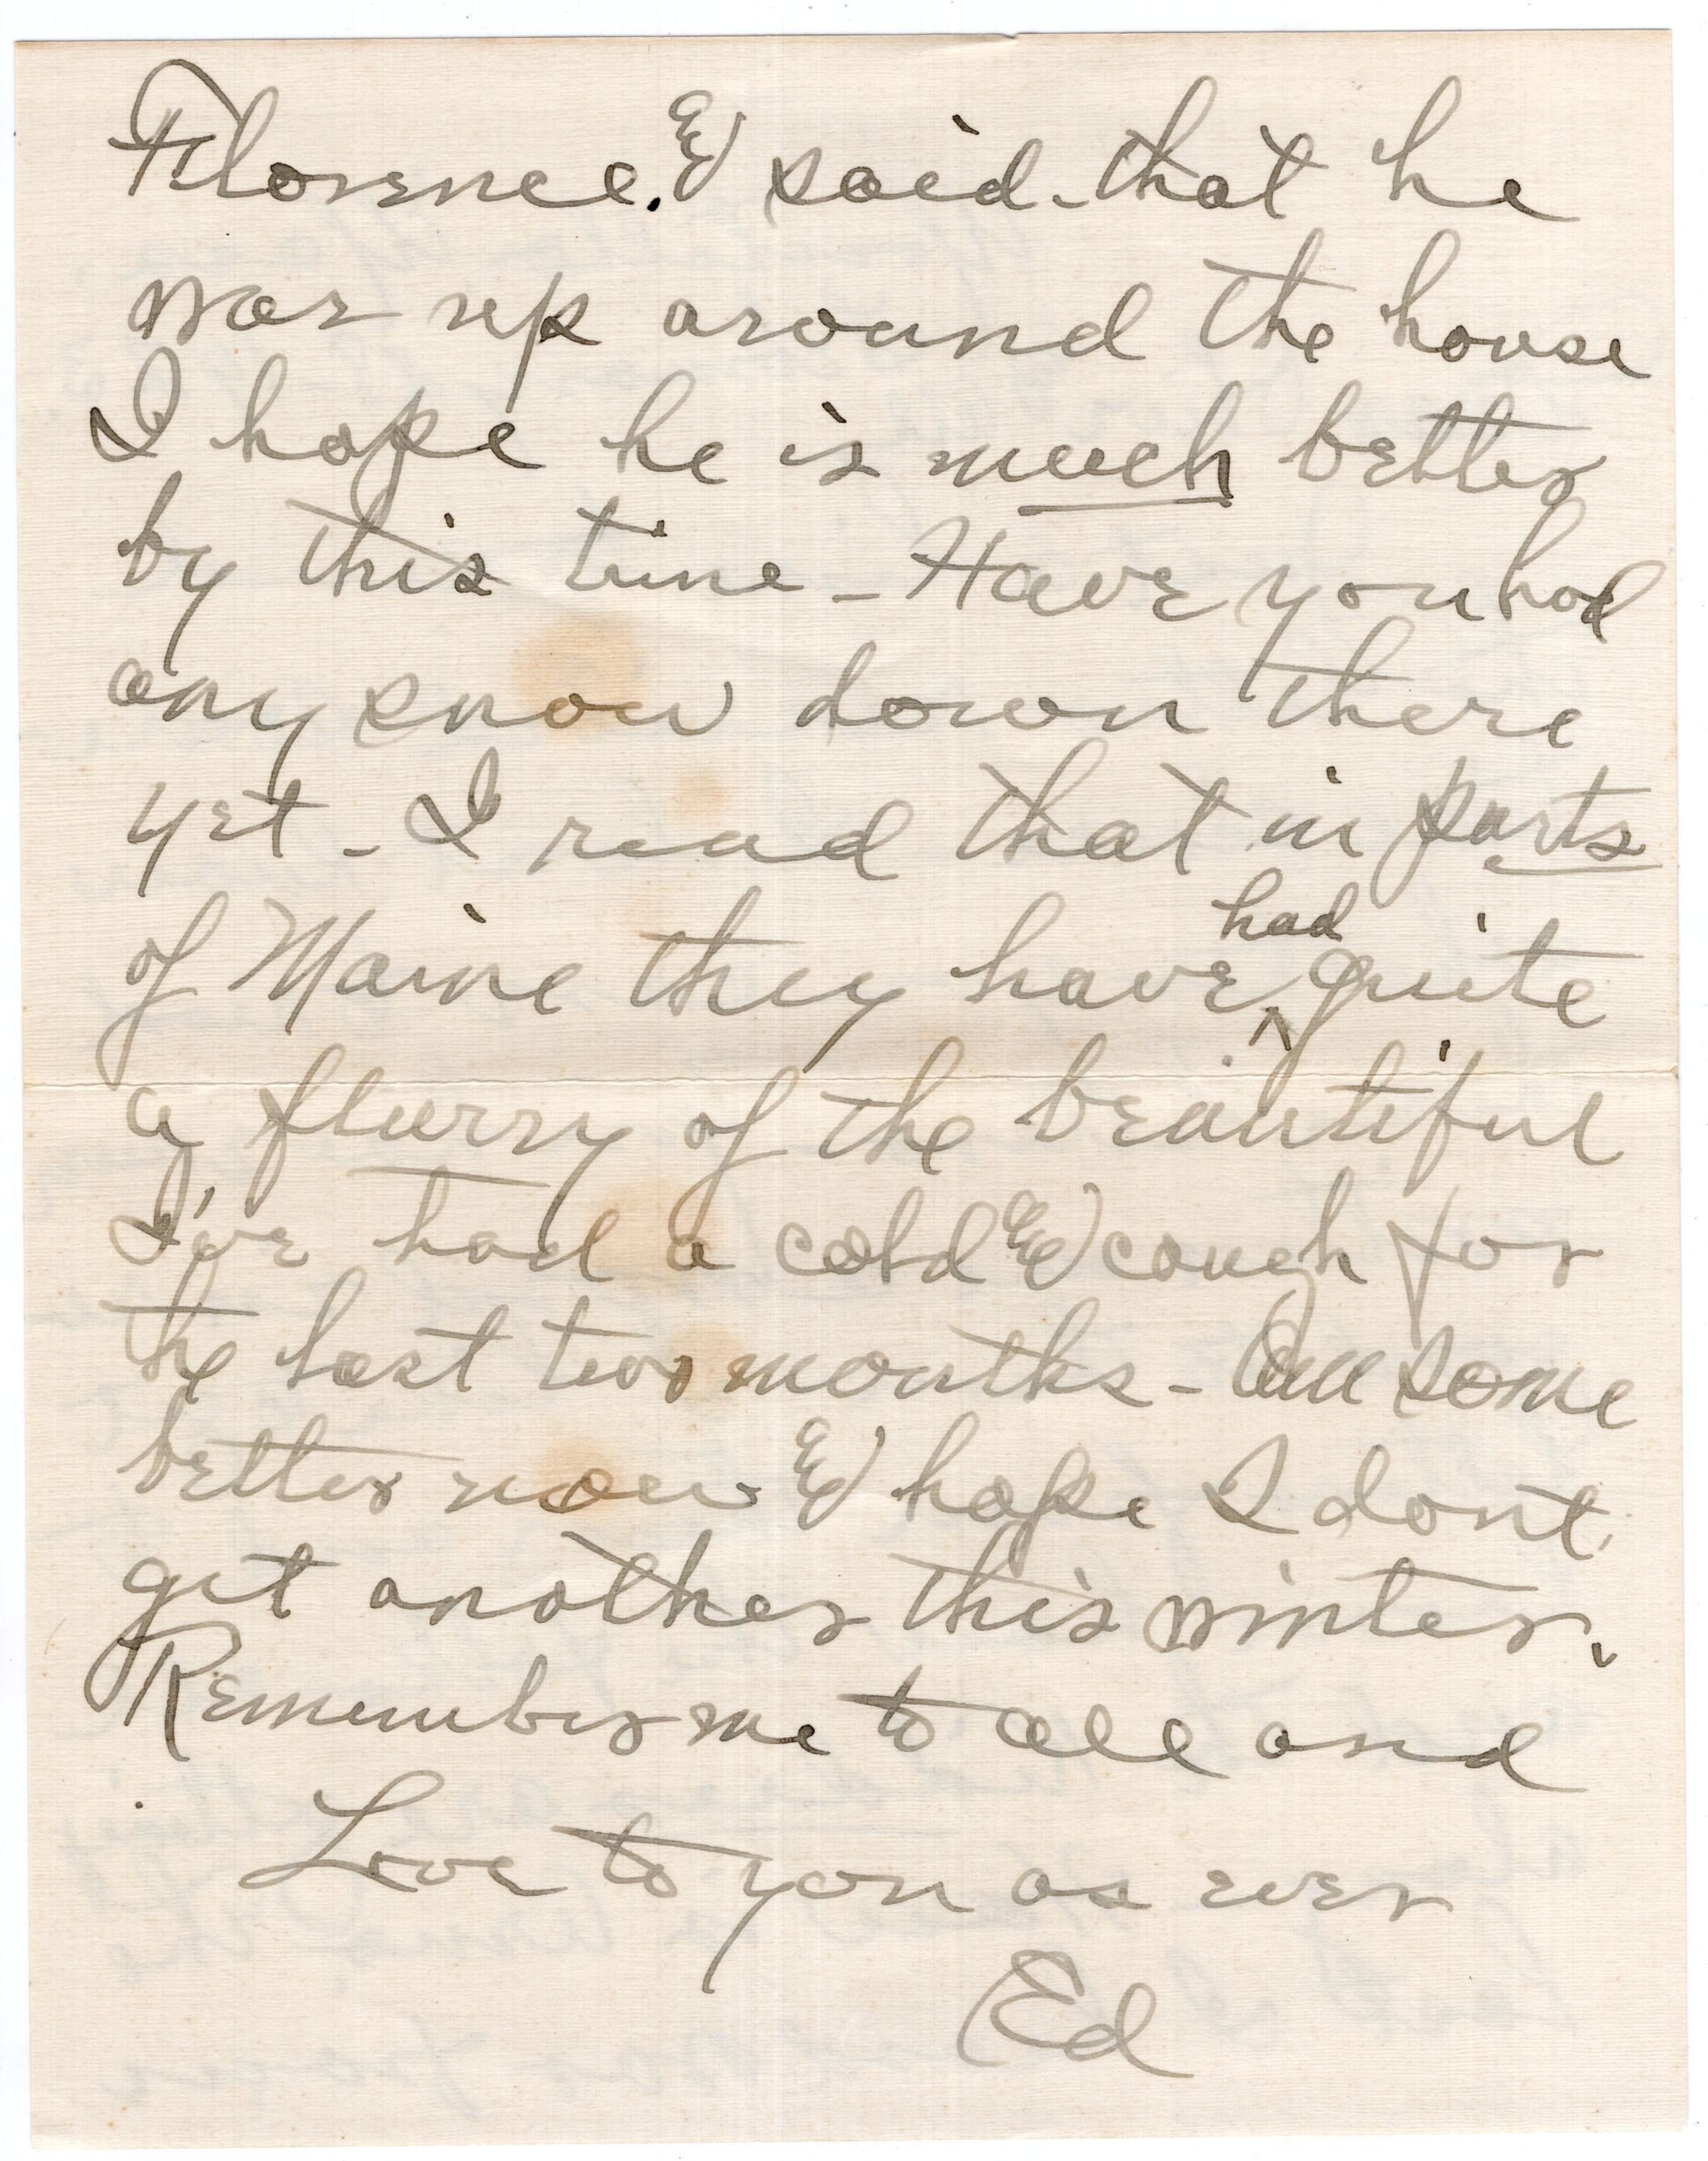 Florence. & said that he
was up around the house
I hope he is much better
by this time - Have you had
any snow down there
yet - I read that in parts
of Maine they have had quite
a flurry of the beautiful
I've had a cold & cough for
the last two months - Am some
better now & hope I dont
get another this winter.
Remember me to all and
Love to you as ever
Ed